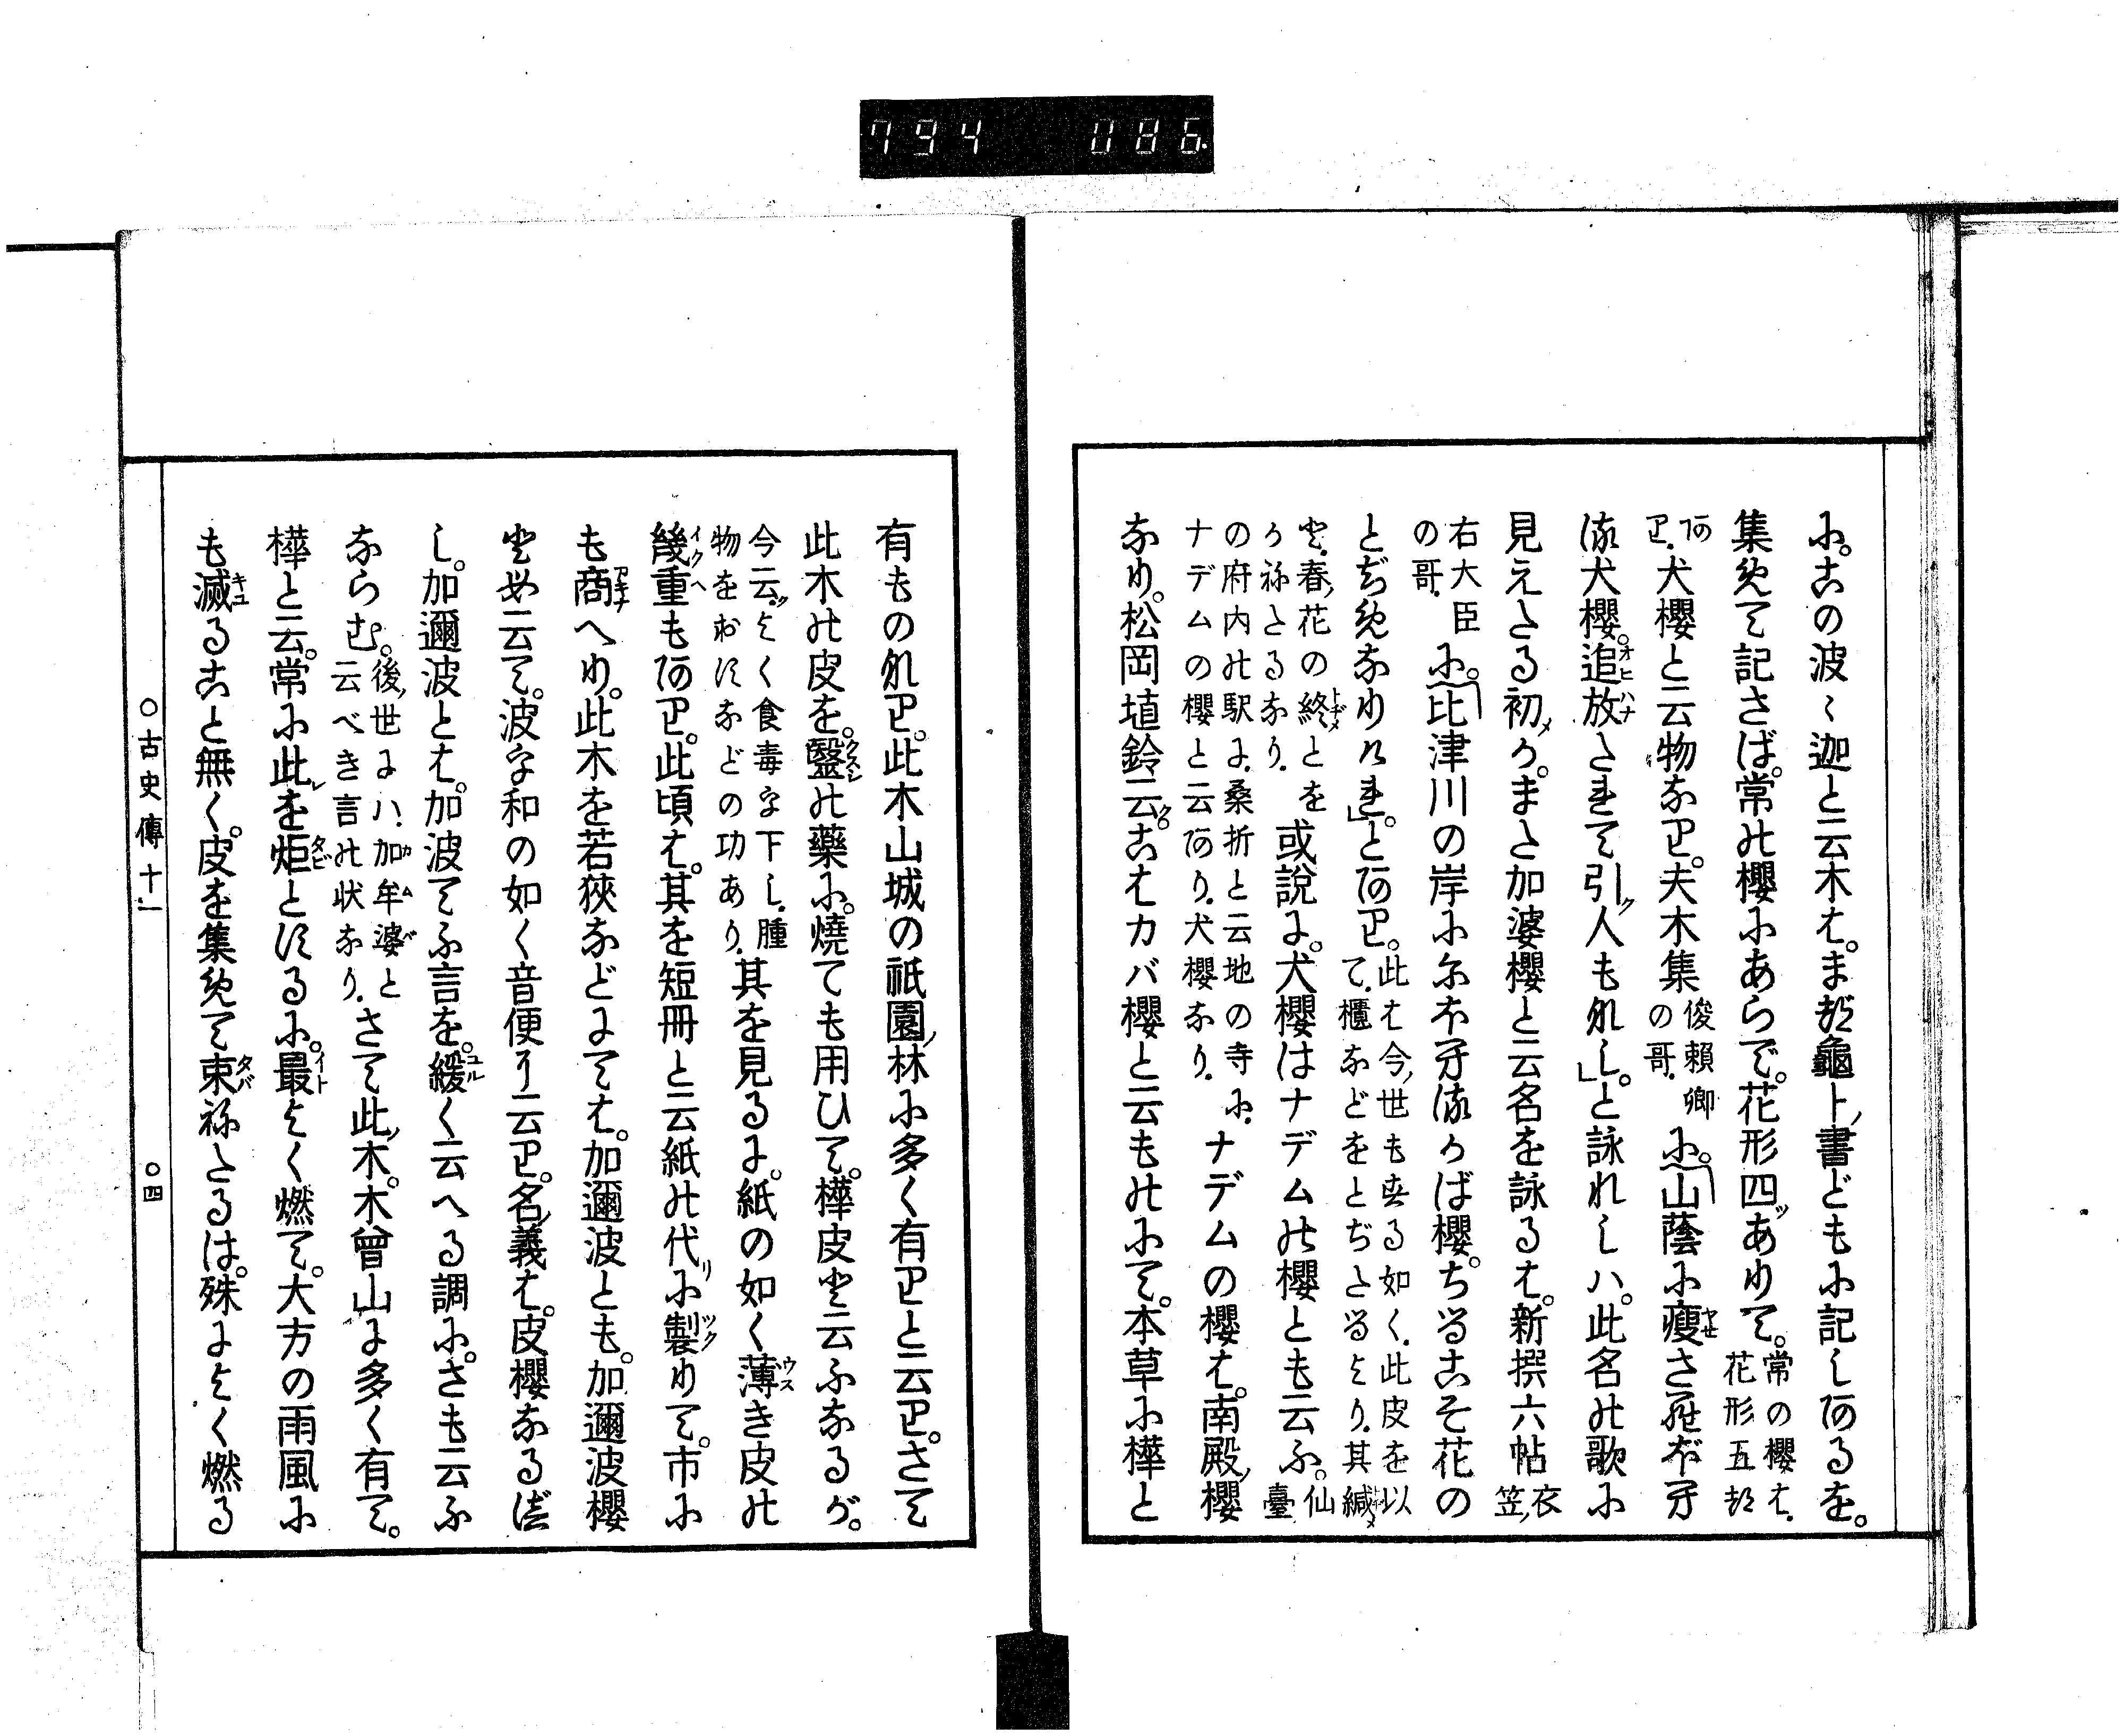 794 086
に。この波々迦と云木は。まづ龜卜ノ書どもに記しあるを。
集めて記さば。常の櫻にあらで。花形四ッありて。常の櫻は、花形五ツ
あり、犬櫻と云物なり。夫木集俊賴卿の哥、に。「山蔭に瘦さらぼへ
る犬櫻。追放たれて引ク人もなし」と詠れしハ。此名の歌に
見えたる初メか。また加婆櫻と云名を詠るは。新撰六帖衣笠ノ
右大臣の哥、に。「比津川の岸ににほへるかば櫻。ちるこそ花の
とぢめなりけれ」とあり。此は今ノ世も爲る如く、此皮を以て、櫃などをとぢたるより、其緘メ
と、春ノ花の終とをかねたるなり、或說に。犬櫻はナデムの櫻とも云ふ。仙臺
の府内の駅に、桑折と云地の寺に、ナデムの櫻と云あり、犬櫻なり、ナデムの櫻は。南殿ノ櫻
なり。松岡埴鈴云。こはカバ櫻と云ものにて。本草に樺と
有ものなり。此木山城の祇園ノ林に多く有りと云り。さて
此木の皮を。醫の藥に。燒ても用ひて。樺皮と云ふなるが。
今云、よく食毒を下し、腫物をおほすなどの功あり、其を見るに。紙の如く薄き皮の
幾重もあり。此頃は。其を短冊と云紙の代リに製りて。市に
も商へり。此木を若狹などにては。加邇波とも。加邇波櫻
とも云て。波を和の如く音便に云り。名ノ義は。皮櫻なるべ
し。加邇波とは。加波てふ言を。緩く云へる調に。さも云ふ
ならむ。後ノ世にハ、加牟婆と云べき言の状なり、さて此ノ木。木曾山に多く有て。
樺と云。常に此レを炬とするに。最よく燃て。大方の雨風に
も滅ること無く。皮を集めて束ねたるは。殊によく燃る
○古史傳十一 ○四